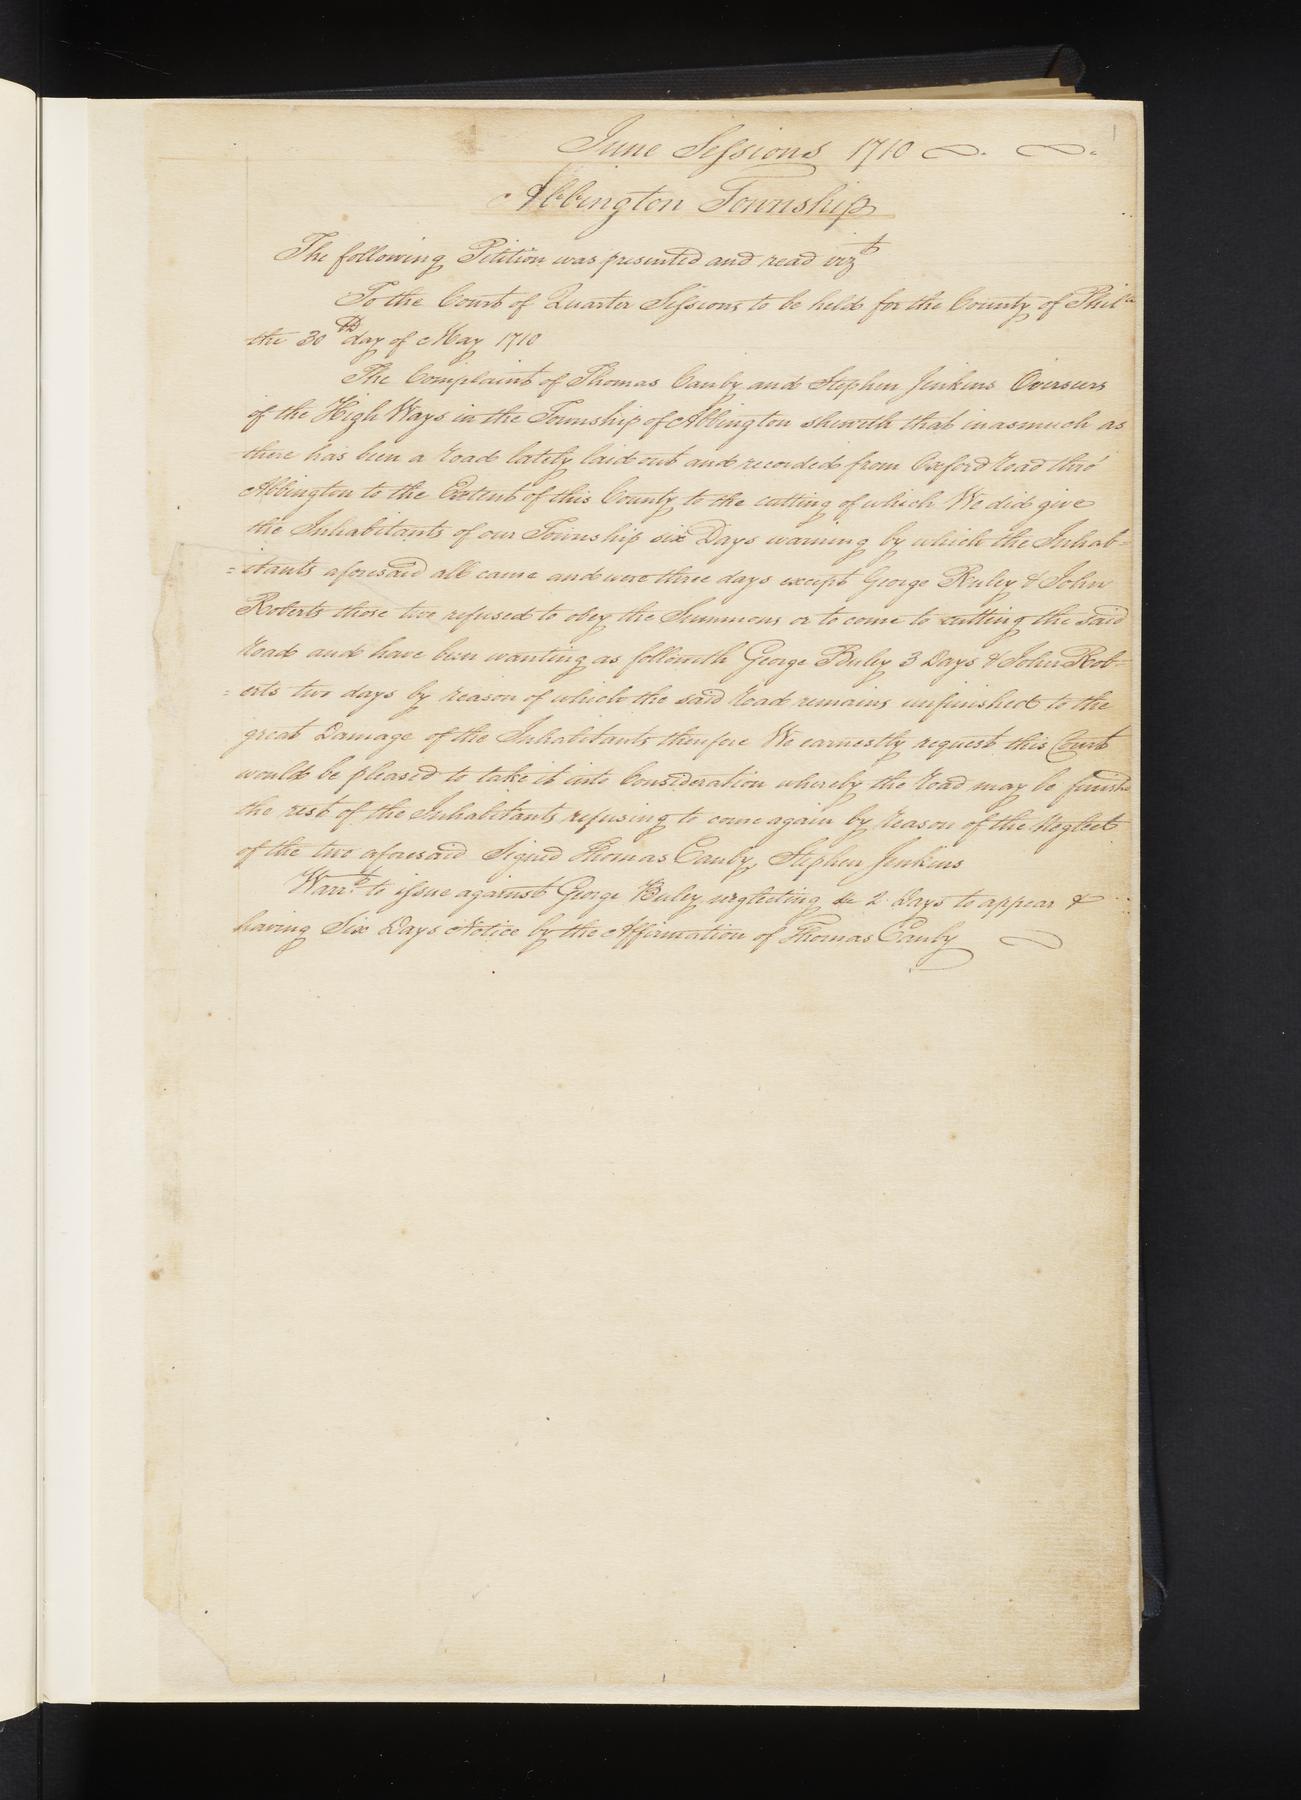 June Sessions 1710
Abbington Township
The following Petition was presented and read vizt
To the Court of Quarter Sessions to be held for the County of Phila
the 30th day of May 1710
The Complaint of Thomas Canby and Stephen Jenkins Overseers
of the High Ways in the Township of Abbington sheweth that inasmuch as
there has been a road lately laid out and recorded from Oxford road thro'
Abbington to the Extent of this County to the cutting of which We did give
the Inhabitants of our Township six Days warning by which the Inhab=
=itants aforesaid all came and were three days except George Ruley & John
Roberts those two refused to obey the Summons or to come to cutting the said
road and have been wanting as followeth George Buley 3 Days & John Rob=
=erts two days by reason of which the said road remains unfinished to the
great Damage of the Inhabitants therefore We earnestly request this Court
would be pleased to take it into Consideration whereby the road may be finishd
the rest of the Inhabitants refusing to come again by reason of the Neglect
of the two aforesaid Signed Thomas Canby, Stephen Jenkins
Warrt. to issue against George Buley neglecting 2 Days to appear &
having Six Days Notice by the Affirmation of Thomas Canby